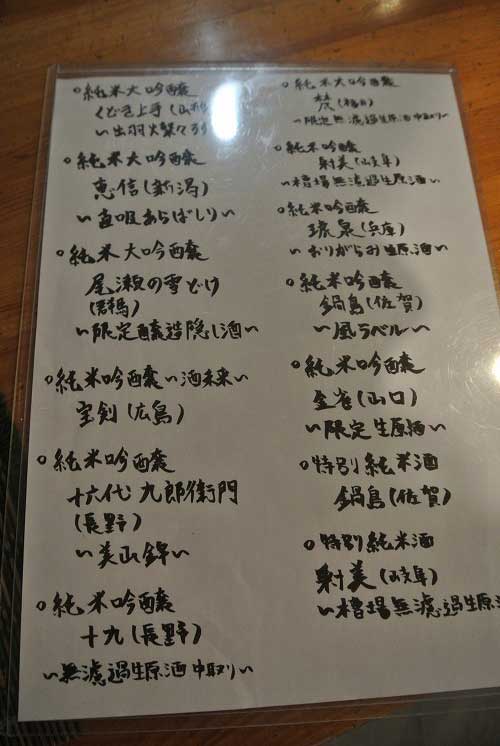 ○純米大吟醸
くどき上手(山形)
〜出羽燦々
○純米大吟醸
恵信(新潟)
〜直汲あらばしり〜
○純米大吟醸
尾瀬の雪どけ
(群馬)
〜限定醸造隠し酒〜
○純米吟醸〜酒未来〜
宝剣(広島)
○純米吟醸
十六代九郎衛門
(長野)
〜美山錦〜
○純米吟醸
十九(長野)
〜無濾過生原酒中取り〜
○純米大吟醸
梵(福井)
〜限定無濾過生原酒中取り〜
○純米吟醸
射美(岐阜)
〜槽場無濾過生原酒〜
○純米吟醸
琥泉(兵庫)
〜おりがらみ生原酒〜
○純米吟醸
鍋島(佐賀)
〜風ラベル〜
○純米吟醸
金雀(山口)
〜限定生原酒〜
○特別純米酒
鍋島(佐賀)
○特別純米酒
射美(岐阜)
〜槽場無濾過生原酒